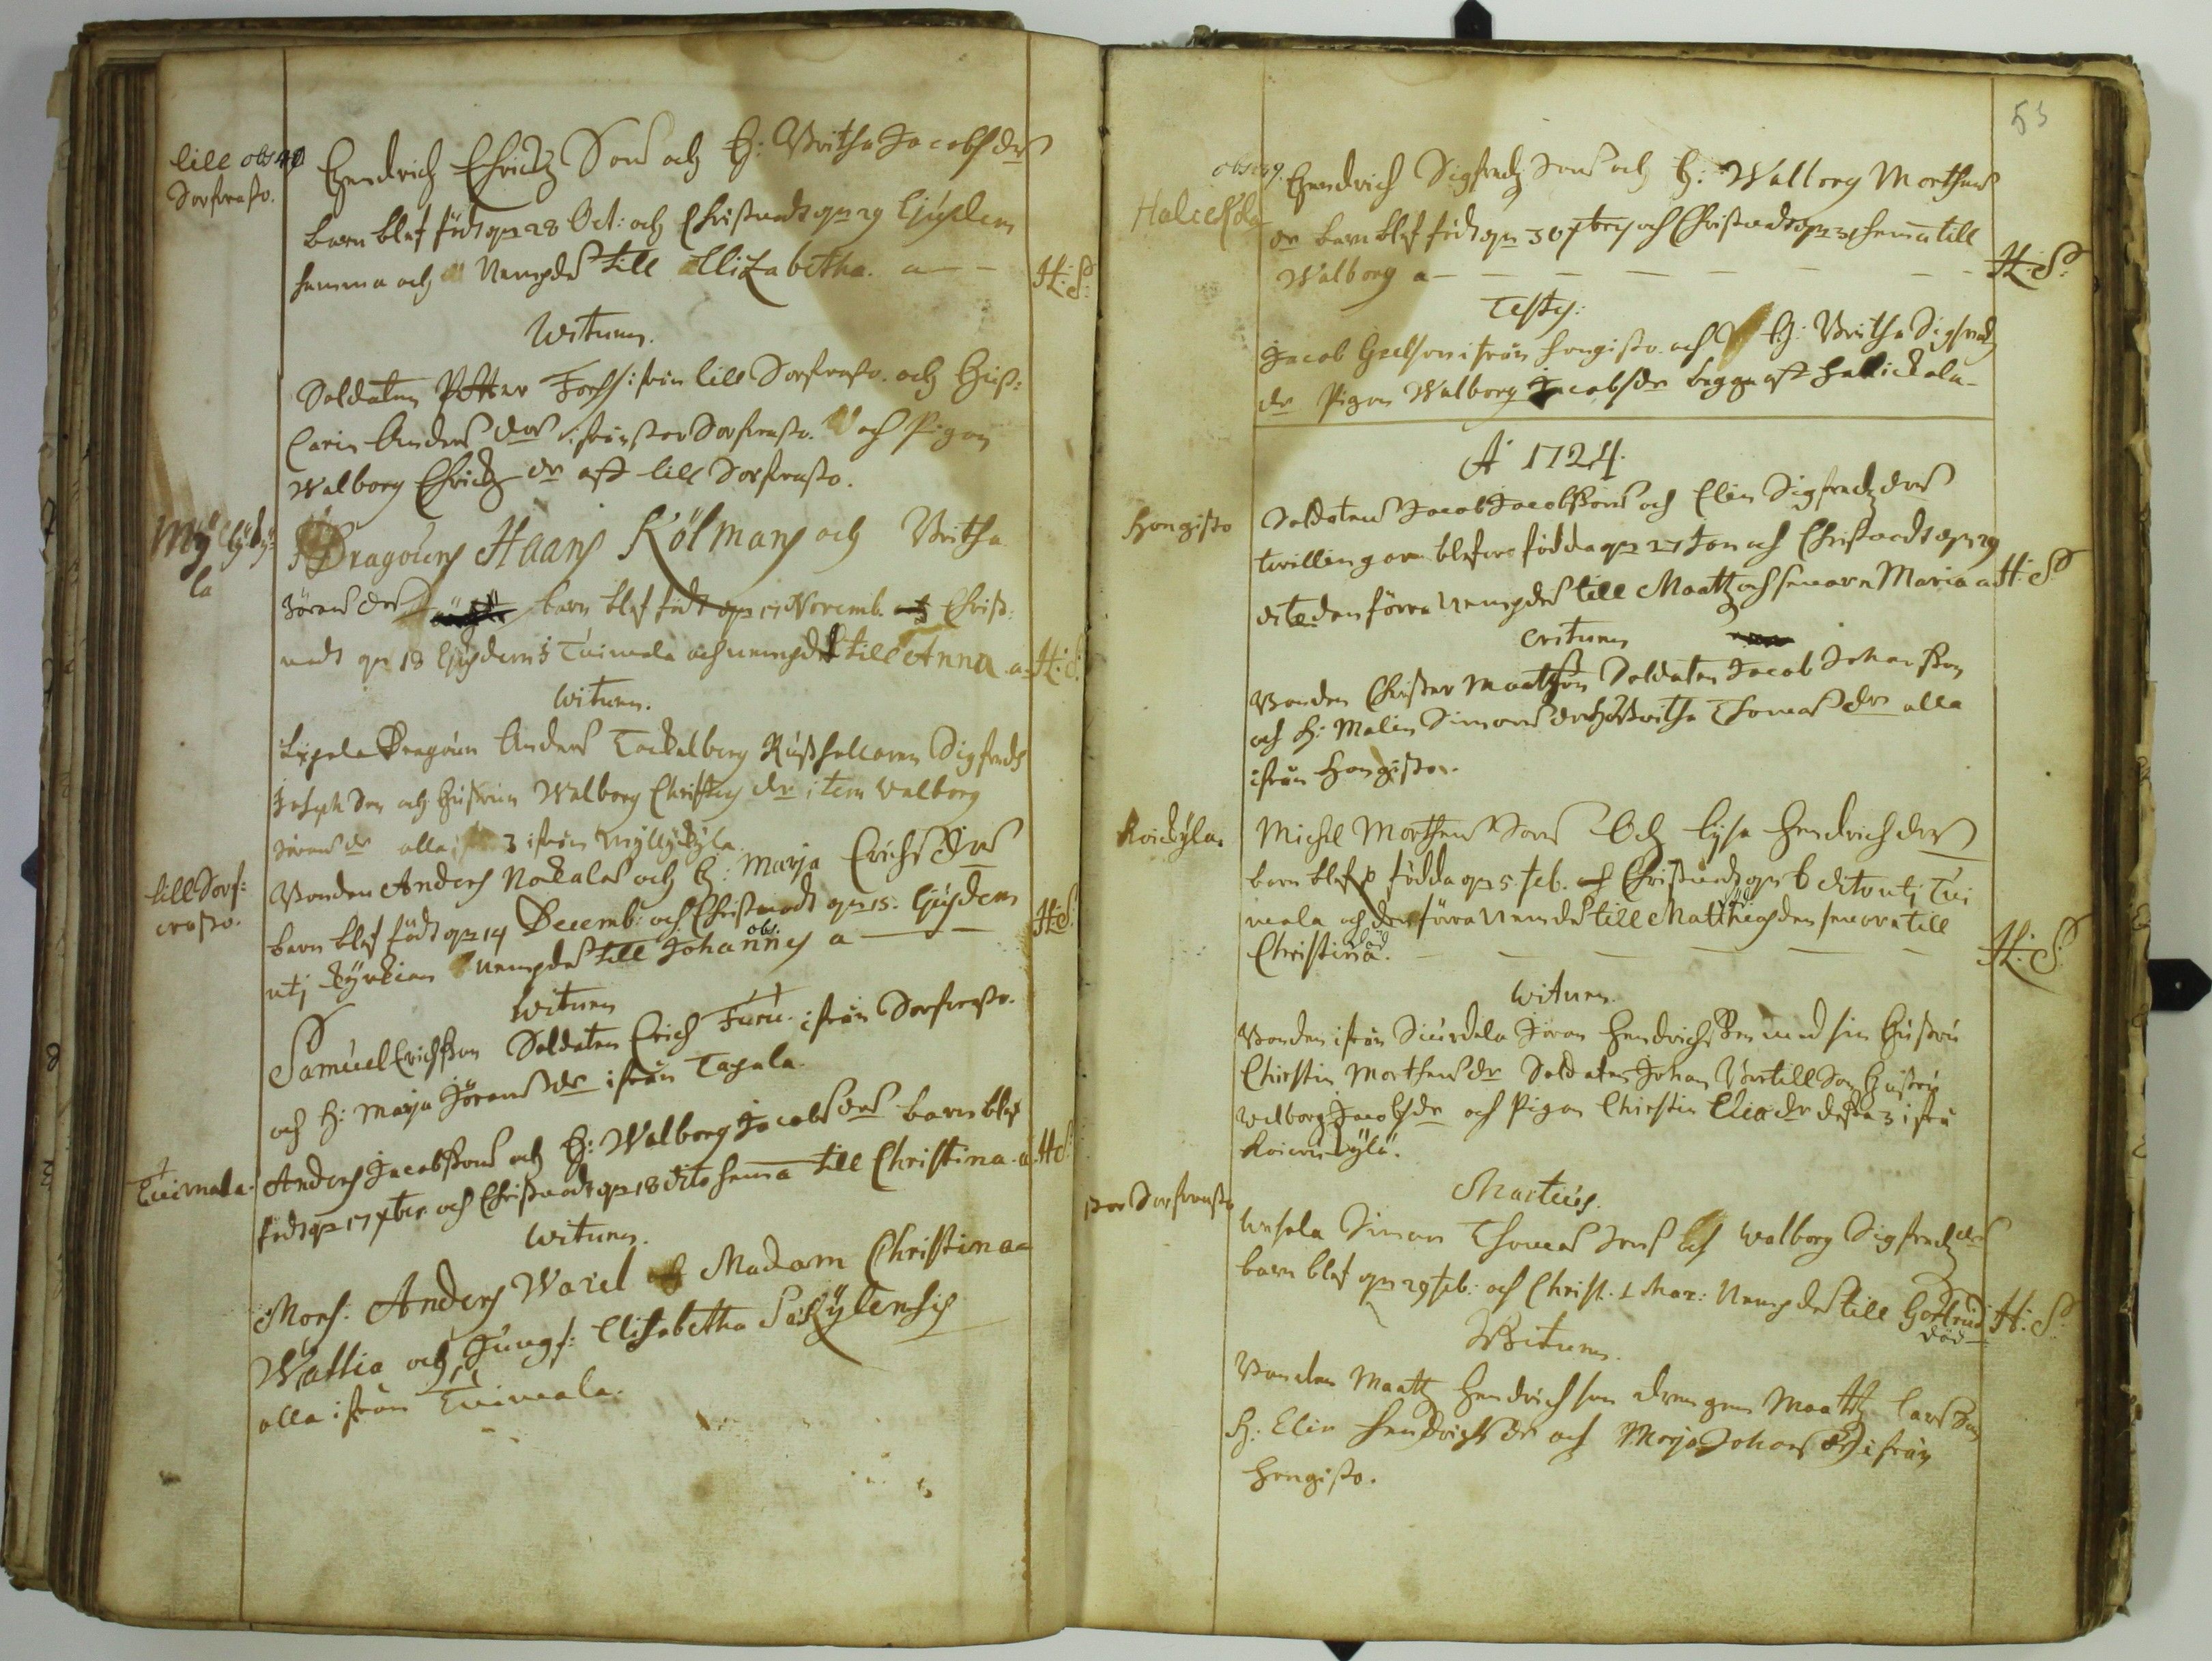 lill obs
Sorfrasto.
Hendrich Ehrichz Sons och H: Britha Jacobs drs
barn blef födt dn 28 Oct: och Christnadt dn 29 Ejusdem
hemma och Nempdes till Ellizabetha. a — — H: S:
Witnen.
Soldaten Petter Forss ifrån lill Sorfrasto. och Hust:
Carin Anders der ifrån stor Sorfrasto. och Pigan
Walborg Ehrichz dr aff lill Sorfrasto.
Myllykylä
Dragouns Haans Kölmans och Britha
Jörans drs barn blef födt dn 17 Novemb. och Christ:
nadt dn 18 Ejusdem i Tuimala och nempdes till Anna a— H: S:
Witnen.
Dragoun Anders Tackelberg Rusthollaren Sigfredh
Joseph Son och Hustrun Walborg Christers dr item Walborg
Jörans dr alla 3 ifrån Myllykylä.
lill Sorf:
rasto.
Bonden Anders Nockalas och H: Marja Erichs drs
barn blef födt dn 14 Decemb: och Christnadt dn 15. Ejusdem H: S:
utj kyrkian Nempdes till Johannes a — —
obs.
Witnen
Samuel Erichsson Soldaten Erich Furu. ifrån Sorfrasto.
och H: Marja Jörans dr ifrån Tapala.
Tuimala.
Anders Jacobssons och H: Walborg Jacobs drs barn blef
födt dn 17 xbr. och Christnadt dn 18 dito hema till Christina. a. H: S:
Witnen.
Mons: Anders Warel och Madam Christina
Wallia och Jungf: Elisabetha Säkylensis
alla ifrån Tuimala.
53
obs
Halickala
Hendrich Sigfredz Sons och H: Walborg Morthens
dr barn blef födt dn 30 xbris och Christnadt dn 31 hema till
Walborg a — — — — — — H: S:
Testes:
Jacob ifrån Hongisto. och H: Britha Sigfredz
dr Pigan Walborg Jacobs dr begge aff Halickala.
A 1724.
Hongisto
Soldatens Jacob Jacobssons och Elin Sigfredz drs
twillingar blefwo födda dn 27 Jan och Christnadt dn 29
dito den förra Nempdes till Maatz och senare Maria a H: S:
Witnen
Bonden Christer Maatsson Soldaten Jacob Johansson
och H: Malin Simons dr H: Britha Thomas dr alla
ifrån Hongisto.
Koickyla.
Michel Morthens Sons Och Lysa Hendrichs drs
barn blefwo födda dn 5. Feb. och Christnadt dn 6 dito utj Tui
mala och den förra Nemdes till Matthias den senare till
Christina. — — — — — H: S:
död
Witnen.
Bonden ifrån Siurdala Jöran Hendrichsson med sin hustru
Chirstin Morthens dr Soldaten Johan Bertill Son hustru
Walborg Jacobs dr och Pigan Chirstin Elias dr dessa 3 ifrå
Koickukylä.
Martius.
stor Sorfrasto
Simon Thomas Sons och Walborg Sigfredz drs
barn blef dn 29 Feb: och Christ. 1 Mar: Nempdes till Gertrud H: S:
död
Witnen.
Bonden Maatz Hendrichson drengen Maatz Lars Son
H: Elin Hendrichs dr och Marja Johans dr ifrån
Hongisto.